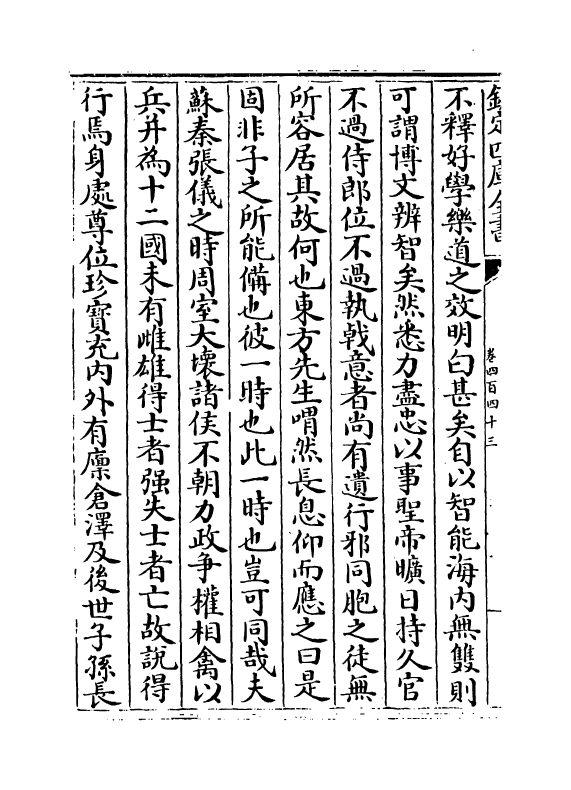 欽定四庫全書
卷四百四十三
不釋好學樂道之效明白甚矣自以智能海内無雙則
可謂博文辨智矣然悉力盡忠以事聖帝曠日持久官
不過侍郎位不過執㦸意者尚有遺行邪同胞之徒無
所容居其故何也東方先生喟然長息仰而應之曰是
固非子之所能備也彼一時也此一時也豈可同哉夫
蘇秦張儀之時周室大壞諸侯不朝力政争權相禽以
兵并為十二國未有雌雄得士者强失士者亡故說得
行焉身處尊位珍寶充内外有廩倉澤及後世子孫長